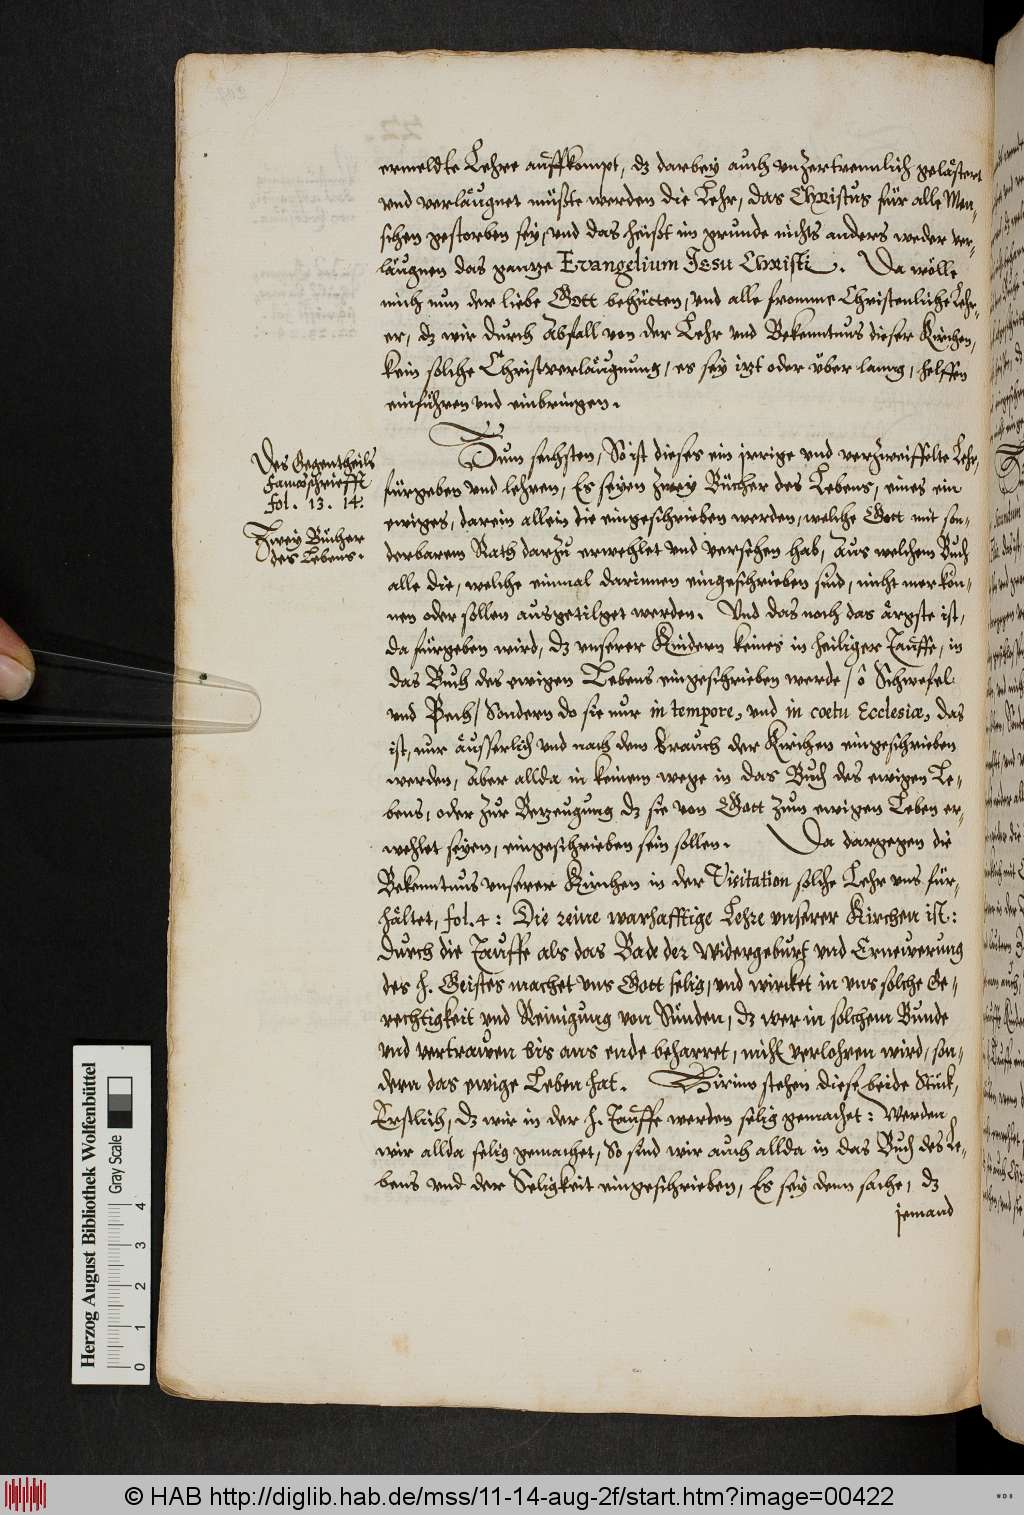 ermeldte Lehre auffkompt, dz darbey auch unzertrennlich gelästert
vnd verläugnet müßte werden die Lehr, das Christus für alle Men-
schen gestorben sey, vnd das heißt im grunde nichts anders weder ver-
läugnen das gantze Evangelium Jesu Christi. Da wölle
mich nun der liebe Gott behütten, vnd alle fromme Christenliche Lehr-
er, dz wir durch Abfall von der Lehr vnd Bekenntnus dieser Kirchen,
kein solche Christverläugnung, es sey itzt oder über lanng, helffen
einführen vnd einbringen.
Zum sechsten, So ist dieses ein irrige vnd verzweiffelte Lehr,
fürgeben vnd lehren, Es seyen zwey Bücher des Lebens, eines ein
ewiges, darein allein die eingeschrieben werden, welche Gott mit son-
derbarem Rath darzu erwehlet vnd versehen hab, Aus welchem Buch
alle die, welche einmal darinnen eingeschrieben sind, nicht mer kön-
nen oder sollen ausgetilget werden. Vnd das noch das ärgste ist,
da fürgeben wird, dz vnserer Kindern keines in heiliger Tauffe, in
das Buch des ewigen Lebens eingeschrieben werde / ô Schwefel
vnd Pech / Sondern do sie nur in tempore, vnd in coetu Ecclesiæ, das
ist, nur äusserlich vnd nach dem brauch der Kirchen eingeschrieben
werden, Aber allda in keinem wege in das Buch des ewigen Le-
bens, oder zur Betzeugung dz sie von Gott zum ewigen Leben er-
wehlet seyen, eingeschrieben sein sollen. Da dargegen die
Bekenntnus vnserer Kirchen in der Visitation solche Lehr uns für-
hältet, fol. 4 : Die reine warhafftige Lehre vnserer Kirchen ist:
Durch die Tauffe als das Bade der Widergeburt vnd Ernewerung
des H. Geistes machet vns Gott selig, vnd wircket in vns solche Ge-
rechtigkeit vnd Reinigung von Sünden, dz wer in solchem Bunde
vnd vertrawen bis ans ende beharret, nicht verlohren wird, son-
dern das ewige Leben hat. Hirinn stehen diese beide Stück,
Erstlich, dz wir in der H. Tauffe werden selig gemachet: Werden
wir allda selig gemachet, So sind wir auch allda in das Buch des Le-
bens vnd der Seligkeit eingeschrieben, Es sey denn sache, dz
jemand
Des Gegentheils
Famosschriefft
fol. 13. 14.
Zwey Bücher
des Lebens.
Herzog August Bibliothek Wolfenbüttel
Gray Scale
0 1 2 3 4
© HAB http://diglib.hab.de/mss/11-14-aug-2f/start.htm?image=00422